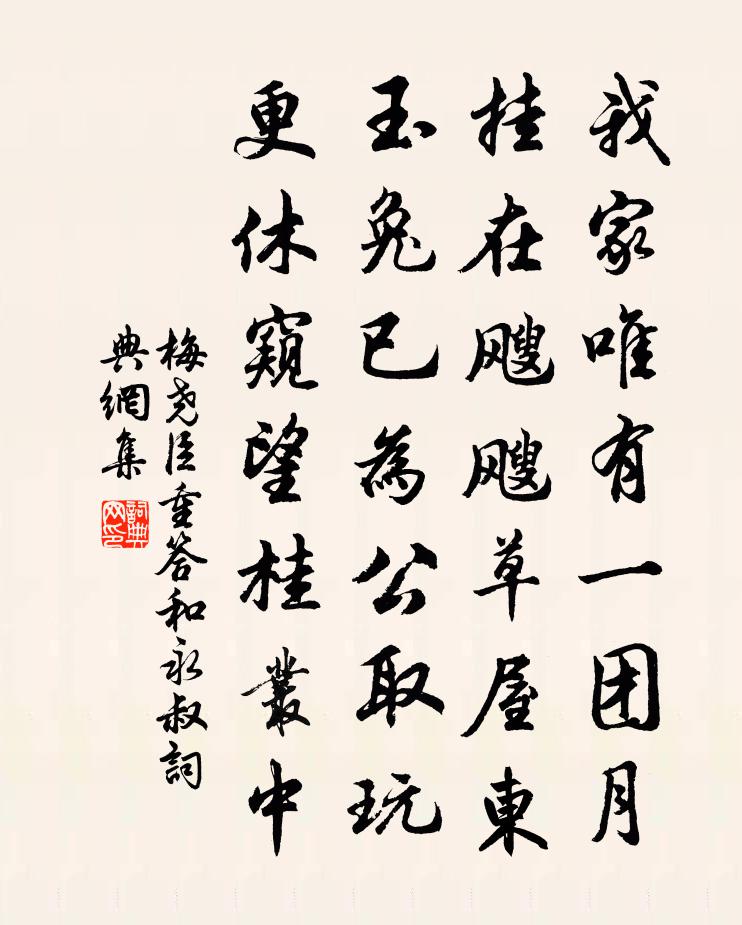 我家唯有一团月
挂在飕飕草屋東
玉兔已為公取玩
更休窺望桂叢中
梅尧臣重答和永叔詞
典網集
詞典
网印